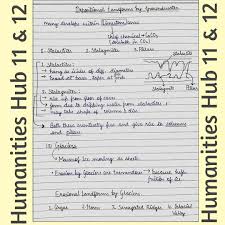 Humanities Hub 11 & 12
Depositional Landforms by Groundwater
Mainly develops within limestone areas
chief chemical → CaCO3
soluble in CO2)
1. Stalactite 2. Stalagmite 3. Pillars
Stalactite
1. Stalactites:
→ hang as icicles of diff. diameters
→ broad at base, taper towards
2. Stalagmite:
→ rise up from floor of cave
→ form due to dripping water from stalactites
→ may take shape of column & disc
→ Both these eventually fuse and give rise to columns and pillars
Glaciers
→ Mass of ice moving as sheets
→ Erosion by glaciers is tremendous → because high friction of ice
Erosional Landforms by Glaciers
1. Cirque 2. Horn 3. Serrated Ridges 4. Glacial Valley
Humanities Hub 11 & 12